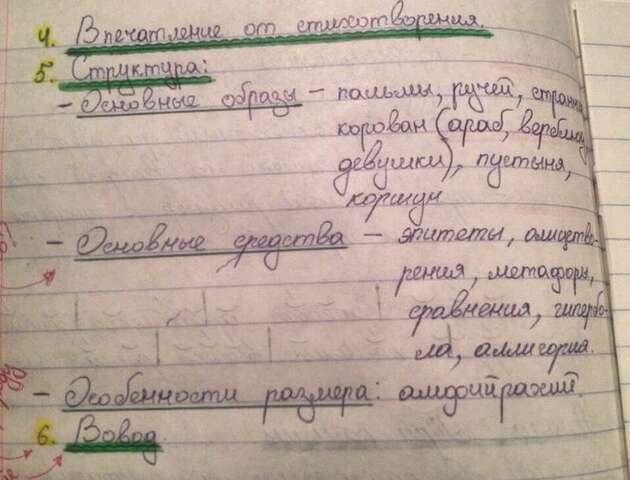 4. Впечатление от стихотворения.
5. Структура:
- Основные образы - пальмы, ручей, странн
корован (араб, верблюд
девушки), пустыня,
коршун
- Основные средства - эпитеты, олицетво-
рения, метафоры,
сравнения, гипербо-
ла, аллигория.
- Особенности размера: амфийрахий.
6. Вовод.